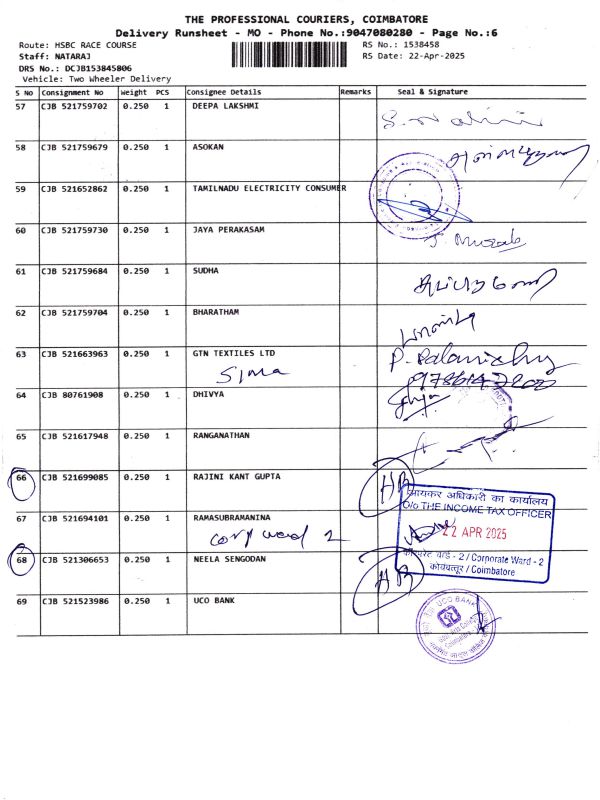 THE PROFESSIONAL COURIERS, COIMBATORE
Delivery Runsheet - MO - Phone No.:9047080280 - Page No.:6
Route: HSBC RACE COURSE
RS No.: 1538458
Staff: NATARAJ
RS Date: 22-Apr-2025
DRS No.: DCJB153845806
Vehicle: Two Wheeler Delivery
S NO Consignment No Weight PCS Consignee Details Remarks Seal & Signature
57 CJB 521759702 0.250 1 DEEPA LAKSHMI
58 CJB 521759679 0.250 1 ASOKAN
59 CJB 521652862 0.250 1 TAMILNADU ELECTRICITY CONSUMER
60 CJB 521759730 0.250 1 JAYA PERAKASAM
61 CJB 521759684 0.250 1 SUDHA
62 CJB 521759704 0.250 1 BHARATHAM
63 CJB 521663963 0.250 1 GTN TEXTILES LTD
Sima
64 CJB 80761908 0.250 1 DHIVYA
65 CJB 521617948 0.250 1 RANGANATHAN
66 CJB 521699085 0.250 1 RAJINI KANT GUPTA
आयकर अधिकारी का कार्यालय
O/o THE INCOME TAX OFFICER
67 CJB 521694101 0.250 1 RAMASUBRAMANINA
corp ward 2
22 APR 2025
वार्ड - 2 / Corporate Ward - 2
कोयम्बत्तूर / Coimbatore
68 CJB 521306653 0.250 1 NEELA SENGODAN
69 CJB 521523986 0.250 1 UCO BANK
UCO BANK